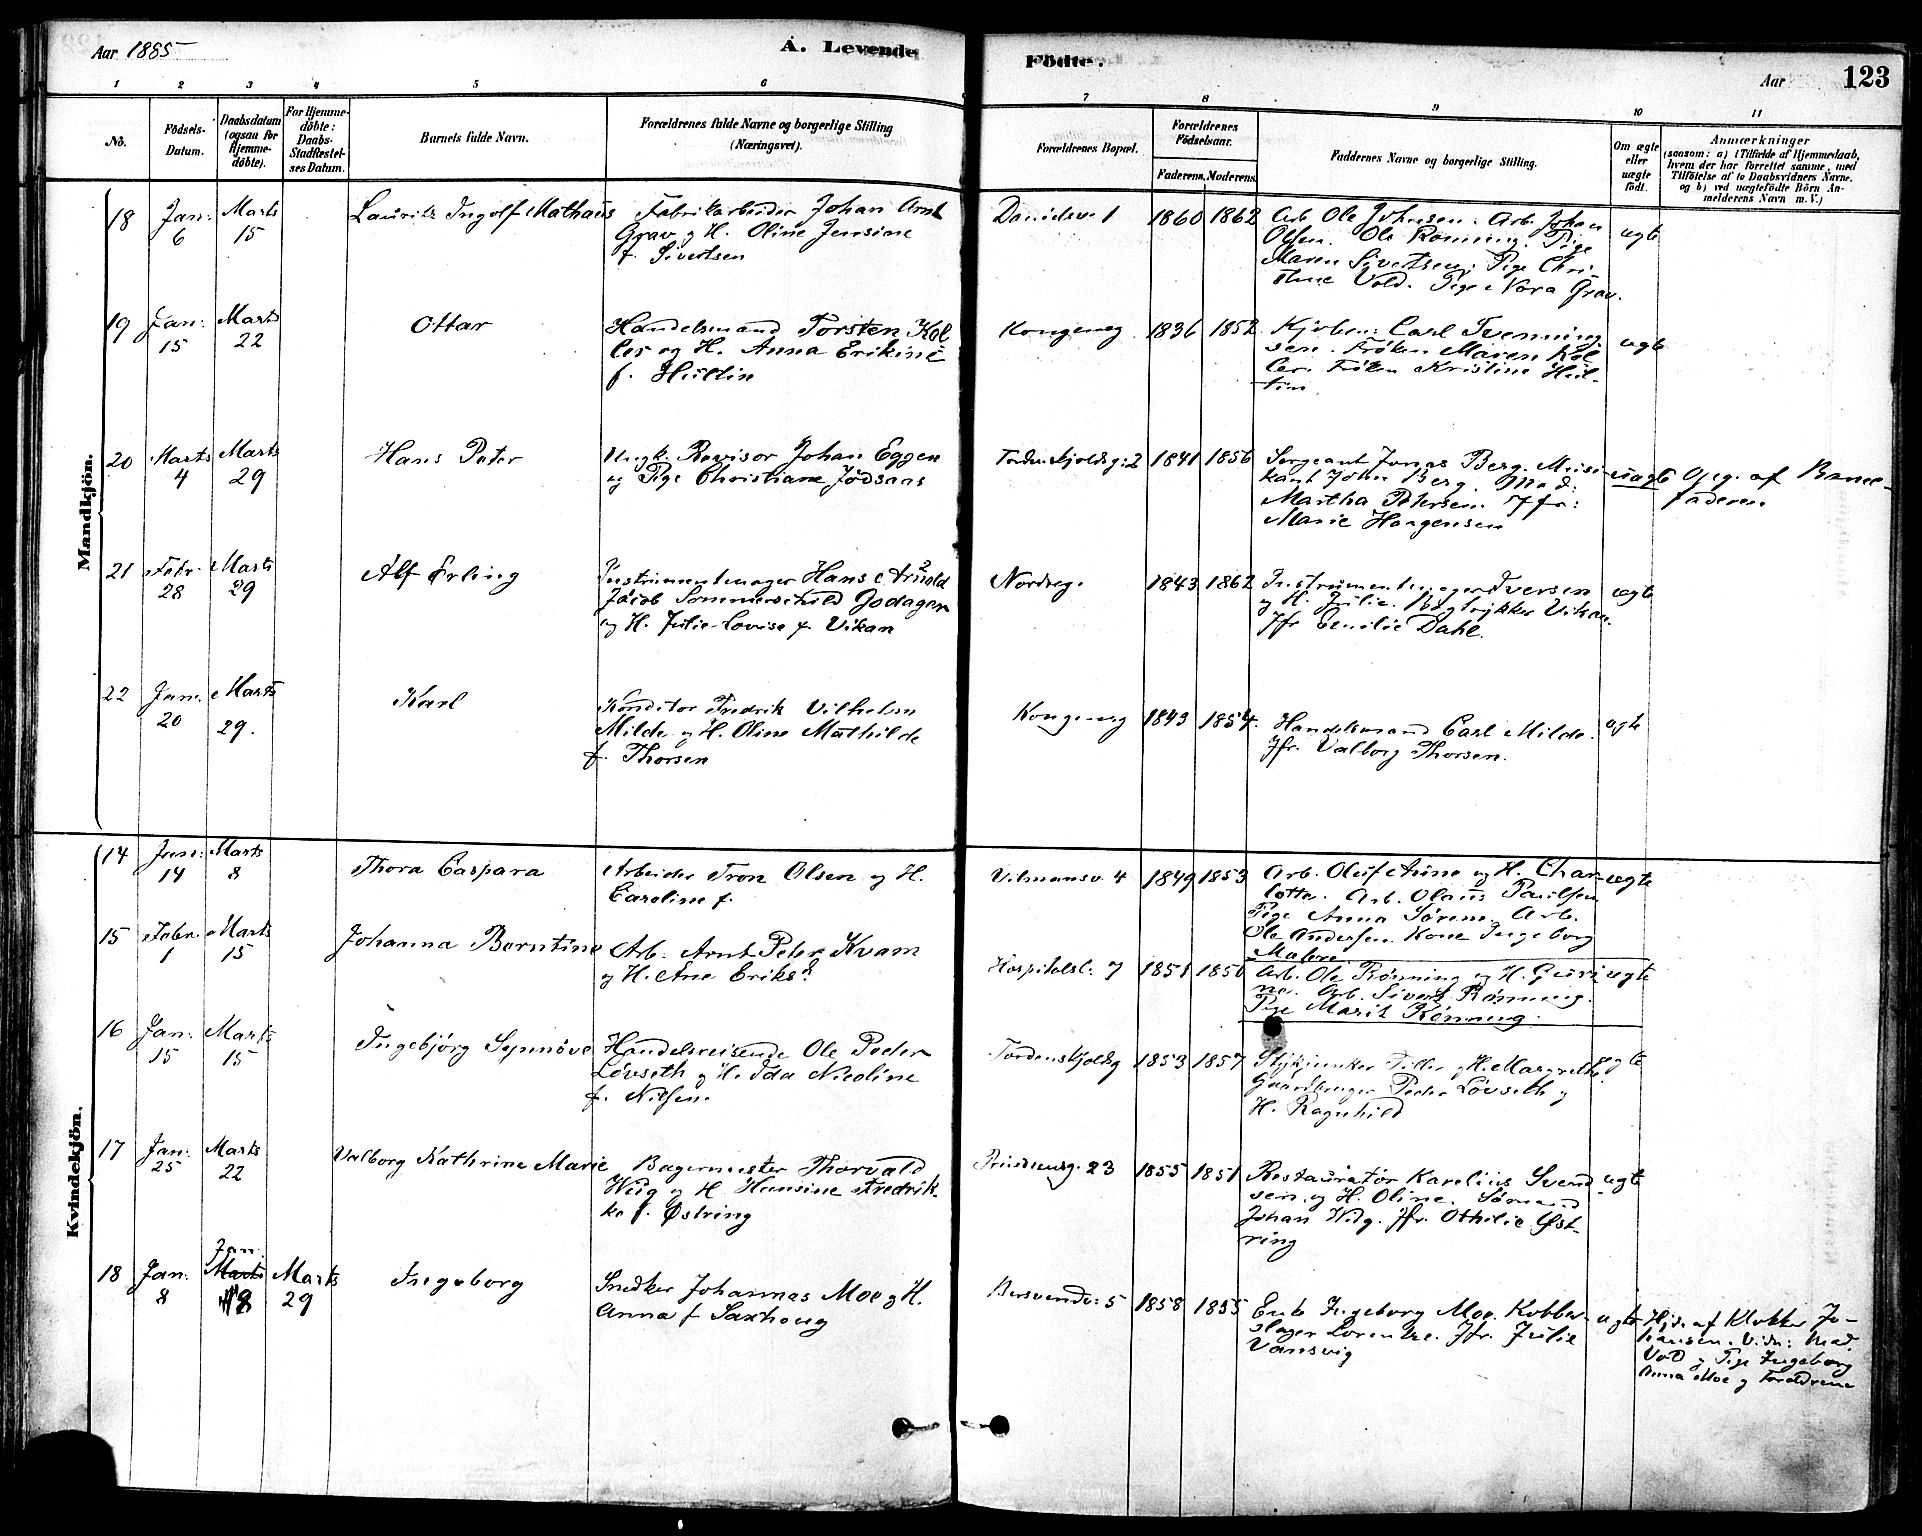 Aar 1885
A. Levende
Födte.
Aar
123
1 2 3 4 5 6 7 8 9 10 11
No.
Födsels-
Datum.
Daabsdatum
(ogsaa for
Hjemme-
döbte).
For Hjemme-
döbte:
Daabs-
Stadfæstel-
ses Datum.
Barnets fulde Navn.
Forældrenes fulde Navne og borgerlige Stilling
(Næringsvei).
Forældrenes Bopæl.
Forældrenes
Födselsaar.
Faderens. Moderens.
Faddernes Navne og borgerlige Stilling.
Om ægte
eller
uægte
født.
Anmærkninger
(saasom: a) i Tilfælde af Hjemmedaab,
hvem der har forrettet samme, med
Tilföielse af to Daabsvidners Navne.
og b) ved uægtefödte Börn An-
melderens Navn m. V.)
Mandkjön.
18
Jan:
6
Marts
15
Lauritz Ingolf Mathæus
Fabrikarbeider Johan Arnt
Grav og H. Oline Jensine
f. Sivertsen
Davidsv. 1
1860 1862
Arb. Ole Johnsen. Arb. Johan
Olsen. Ole Rønning. Pige
Maren Sivertsen. Pige Chri-
stine Vold. Pige Nora Grav.
ægte
19
Jan:
15
Marts
22
Ottar
Handelsmand Torsten Kol
ler og H. Anna Erikine
f. Hultin
Kongensg
1836 1852
Kjøbm: Carl Svenning
sen. Frøken Maren Kol
ler. Frøken Kristine Hul-
tin
ægte
20
Marts
4
Marts
29
Hans Peter
Ungk. Revisor Johan Eggen
og Pige Christiane Jødsaas
Tordenskjoldsg: 2
1841 1856
Sergeant Jonas Berg. Musi
kant John Berg. Mad:
Martha Petersen. Jfr:
Marie Haagensen
uægte
Opg. af Barne-
faderen
21
Febr.
28
Marts
29
Alf Erling
Instrumentmager Hans Arnold
Jacob Sommerschild Jodager
og H. Julie Lovise f. Vikan
Nordreg.
1843 1862
Instrumentmager Iversen
og H. Julie. Bogtrykker Vikan.
Jfr Emilie Dahl.
ægte
22
Jan.
20
Marts
29.
Karl
Konditor Fredrik Vilhelm
Milde og H. Oline Mathilde
f. Thorsen
Kongensg
1843 1854.
Handelsmand Carl Milde.
Jfr. Valborg Thorsen.
ægte
Kvindekjön.
14
Jan:
14
Marts
8
Thora Caspara
Arbeider Tron Olsen og H.
Caroline f.
Vilmansv. 4
1849 1853
Arb. Oluf Aune og H. Char-
lotta. Arb. Olaus Paulsen
Pige Anna Sørem. Arb.
Ole Andersen. Kone Ingeborg
ægte
15
Febr.
1
Marts
15
Johanna Berntine
Arb. Arnt Peter Kvam
og H. Ane Eriksd.
Hospitalsl: 7
1851 1856
Arb. Ole Rønning og H. Guri
Arb. Sivert Rønning.
Pige Marit Rønning.
ægte
16
Jan:
15
Marts
15
Ingebjørg Synnøve
Handelsreisende Ole Peder
Løvseth og H. Ida Nicoline
f. Nilsen.
Tordenskjoldsg
1853 1857
Stykjunker Tiller og H. Margrethe.
Gaardbruger Peder Løvseth og
H. Ragnhild
ægte
17
Jan:
25
Marts
22
Valborg Kathrine Marie
Bagermester Thorvald
Wiig og H. Hansine Fredrik-
ke f. Østring
Prindsensg. 23
1855 1851
Restauratør Karelius Svend
sen og H. Oline. Sømand
Johan Wiig. Jfr. Othilie Øst-
ring
ægte
18
Jan.
8
Jan.
Marts
18
Marts
29
Ingeborg
Snedker Johannas Moe og H.
Anna f. Saxhoug
Bersvendv: 5
1858 1855
Enke Ingeborg Moe. Kobber-
slager Lorentze. Jfr. Julie
Vansvig
ægte
Hjd. af Klokker Jo-
hansen. Vidn: Mad.
Vold og Pige Ingeborg
Anna Moe og Forældrene